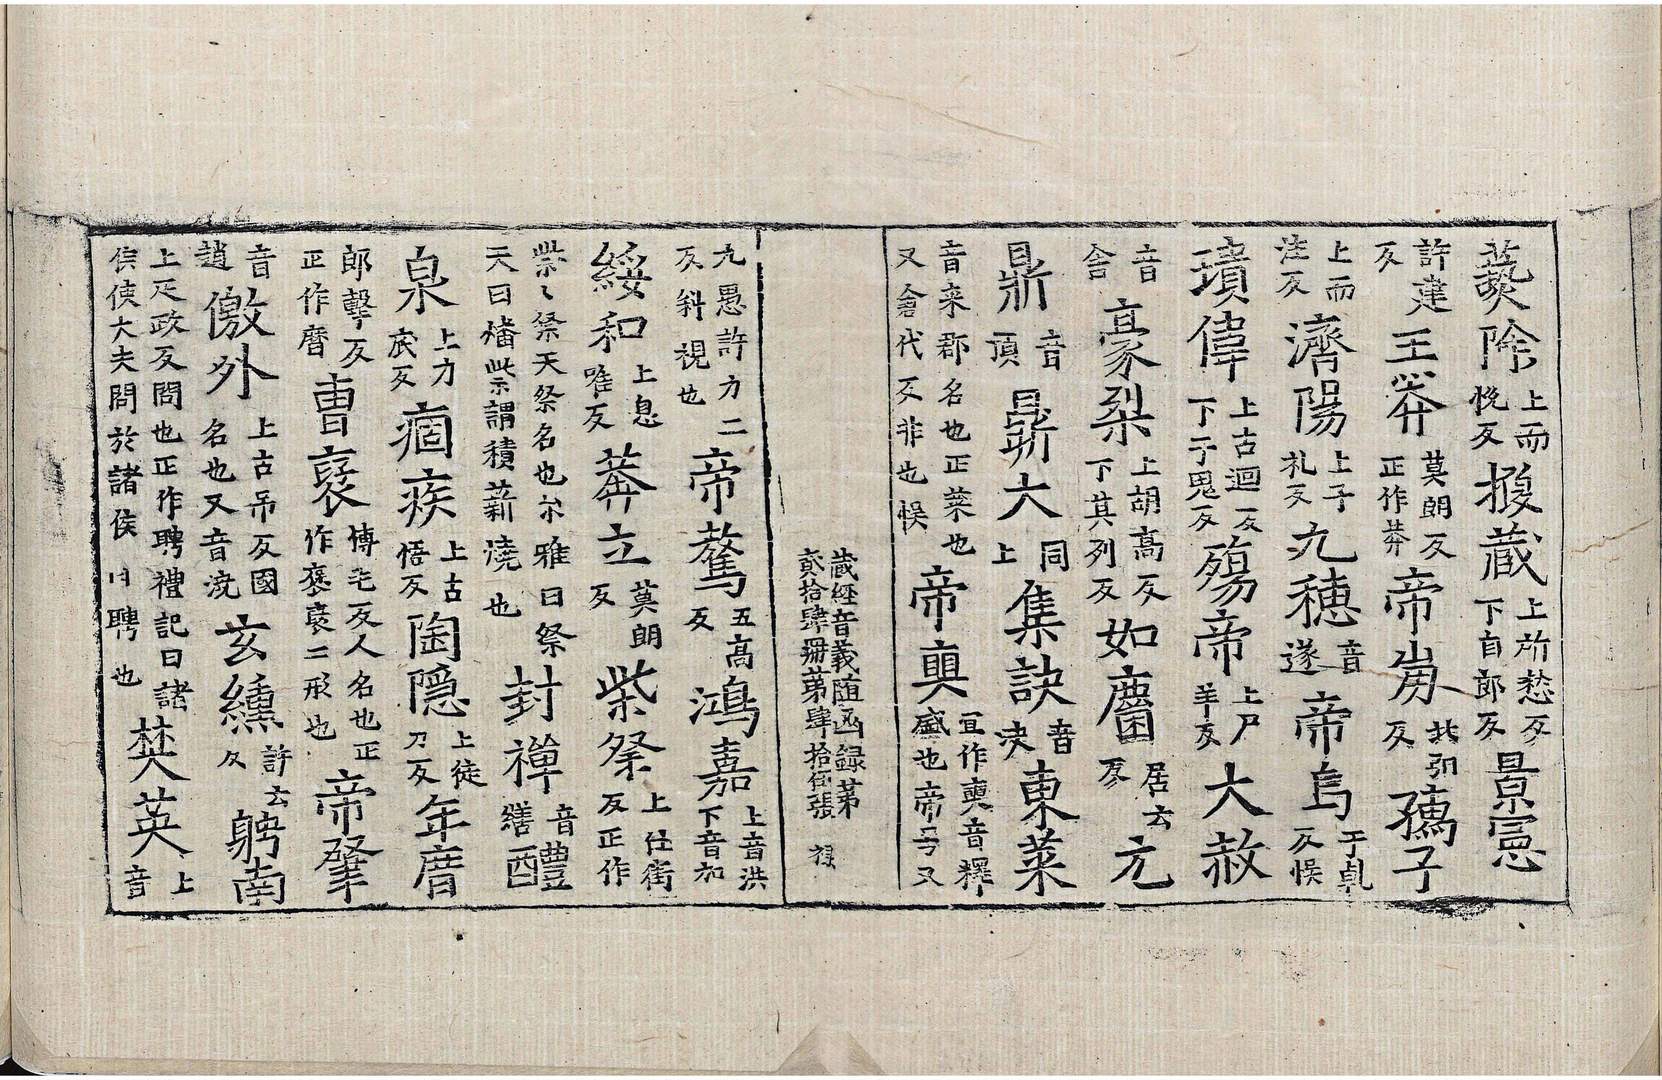 爇除上而悅反搜蔵上所愁反下自郎反景憲
許建反王莽莫朗反正作莽帝崩北弘反孺子
上而注反濟陽上子礼反九穗音遂帝鳥于𠃵反悮
璝偉上古迴反下于鬼反殤帝上尸羊反大赦
音舎豪桀上胡高反下其列反如麕居云反元
鼎音頂鼎大同上集訣音決東萊
音来郡名也正萊也又舎代反非也悮帝奭宜作奭音釋盛也帝号又
蔵經音義随函録第
貳拾肆冊第肆拾伍張 禄
九愚許力二反斜視也帝驁五高反鴻嘉上音洪下音加
綏和上息唯反莽立莫朗反柴祭上仕街反正作
柴〻祭天祭名也尒雅曰祭天曰燔柴謂積薪澆也封禅音繕醴
泉上力底反痼疾上古悟反陶隠上徒刀反年暦
郎擊反正作曆曹褒博毛反人名也正作褒襃二形也帝肇
音趙儌外上古吊反國名也又音澆玄纁許云反聘南
上疋政反問也正作聘禮記曰諸侯使大夫問於諸侯曰聘也焚英上音